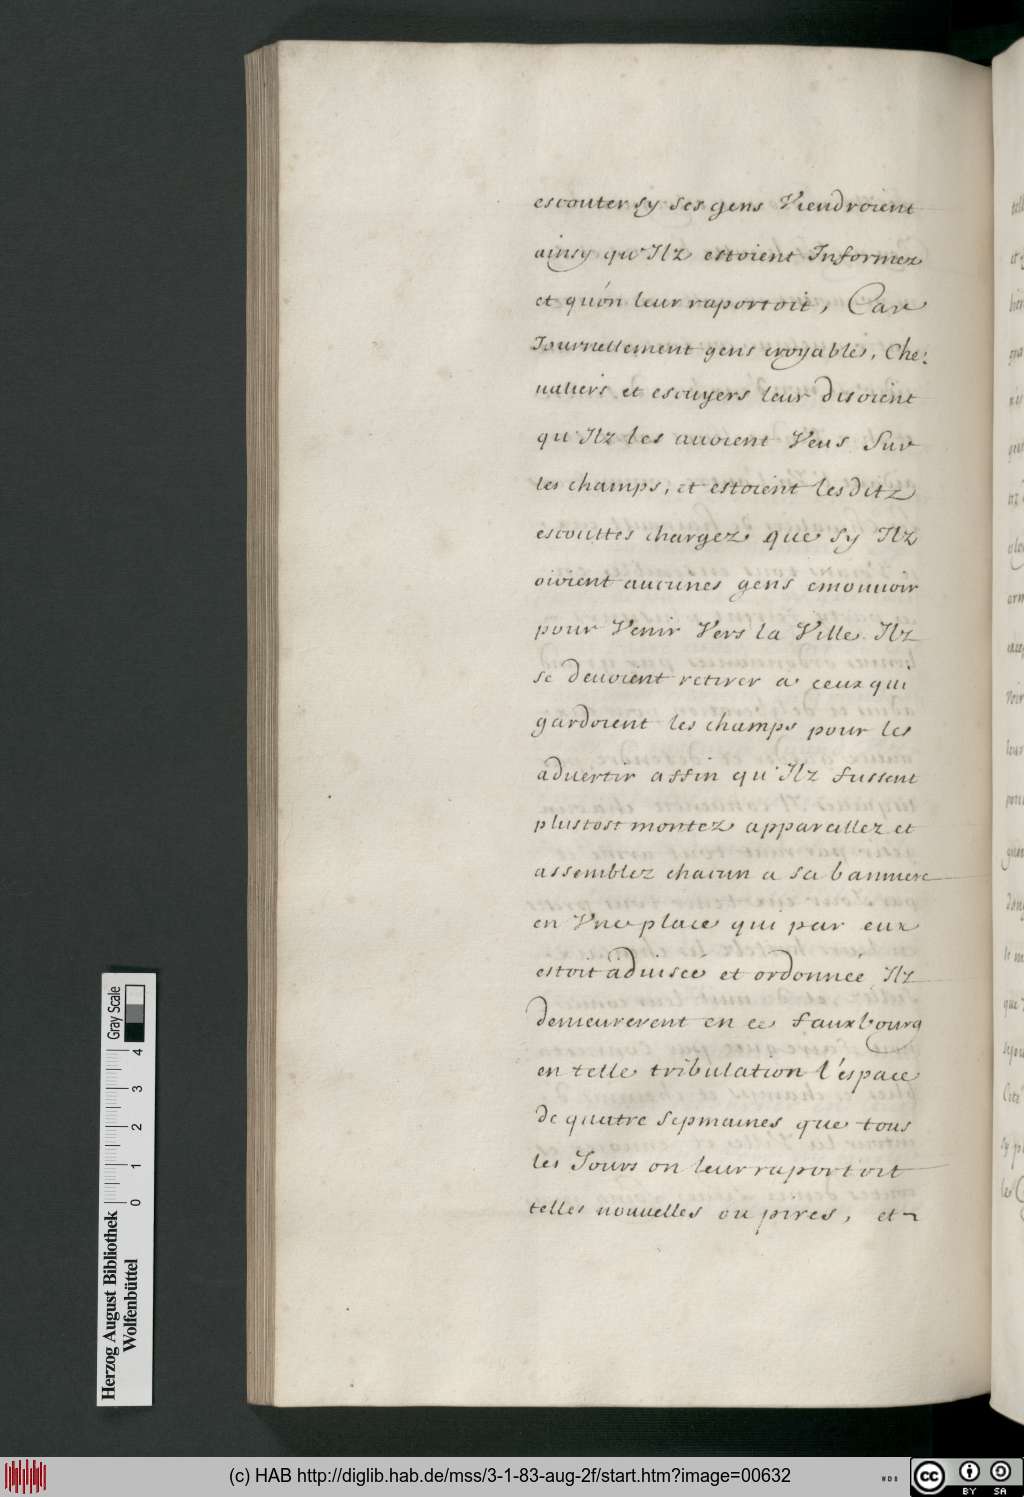 escouter sy ses gens Viendroient
ainsy qu'Ilz estoient Informez
et qu'on leur raportoit, Car
Journellement gens croyables, Che:
ualiers et escuyers leur disoient
qu'Ilz les auoient Veus Sur
les champs, et estoient lesditz
escouttes chargez que sy Ilz
oivient aucunes gens emouuoir
pour Venir Vers la Ville Ilz
se deuoient retirer a ceux qui
gardoient les champs pour les
aduertir affin qu'Ilz fussent
plustost montez appareillez et
assemblez chacun a sa banniere
en Vne place qui par eux
estoit aduisée et ordonnée Ilz
demeurerent en ce faux bourg
en telle tribulation l'espace
de quatre sepmaines que tous
les Jours on leur raportoit
telles nouuelles ou pires, et
Herzog August Bibliothek
Wolfenbüttel
0 1 2 3 4
Gray Scale
(c) HAB http://diglib.hab.de/mss/3-1-83-aug-2f/start.htm?image=00632
WDB
cc BY SA